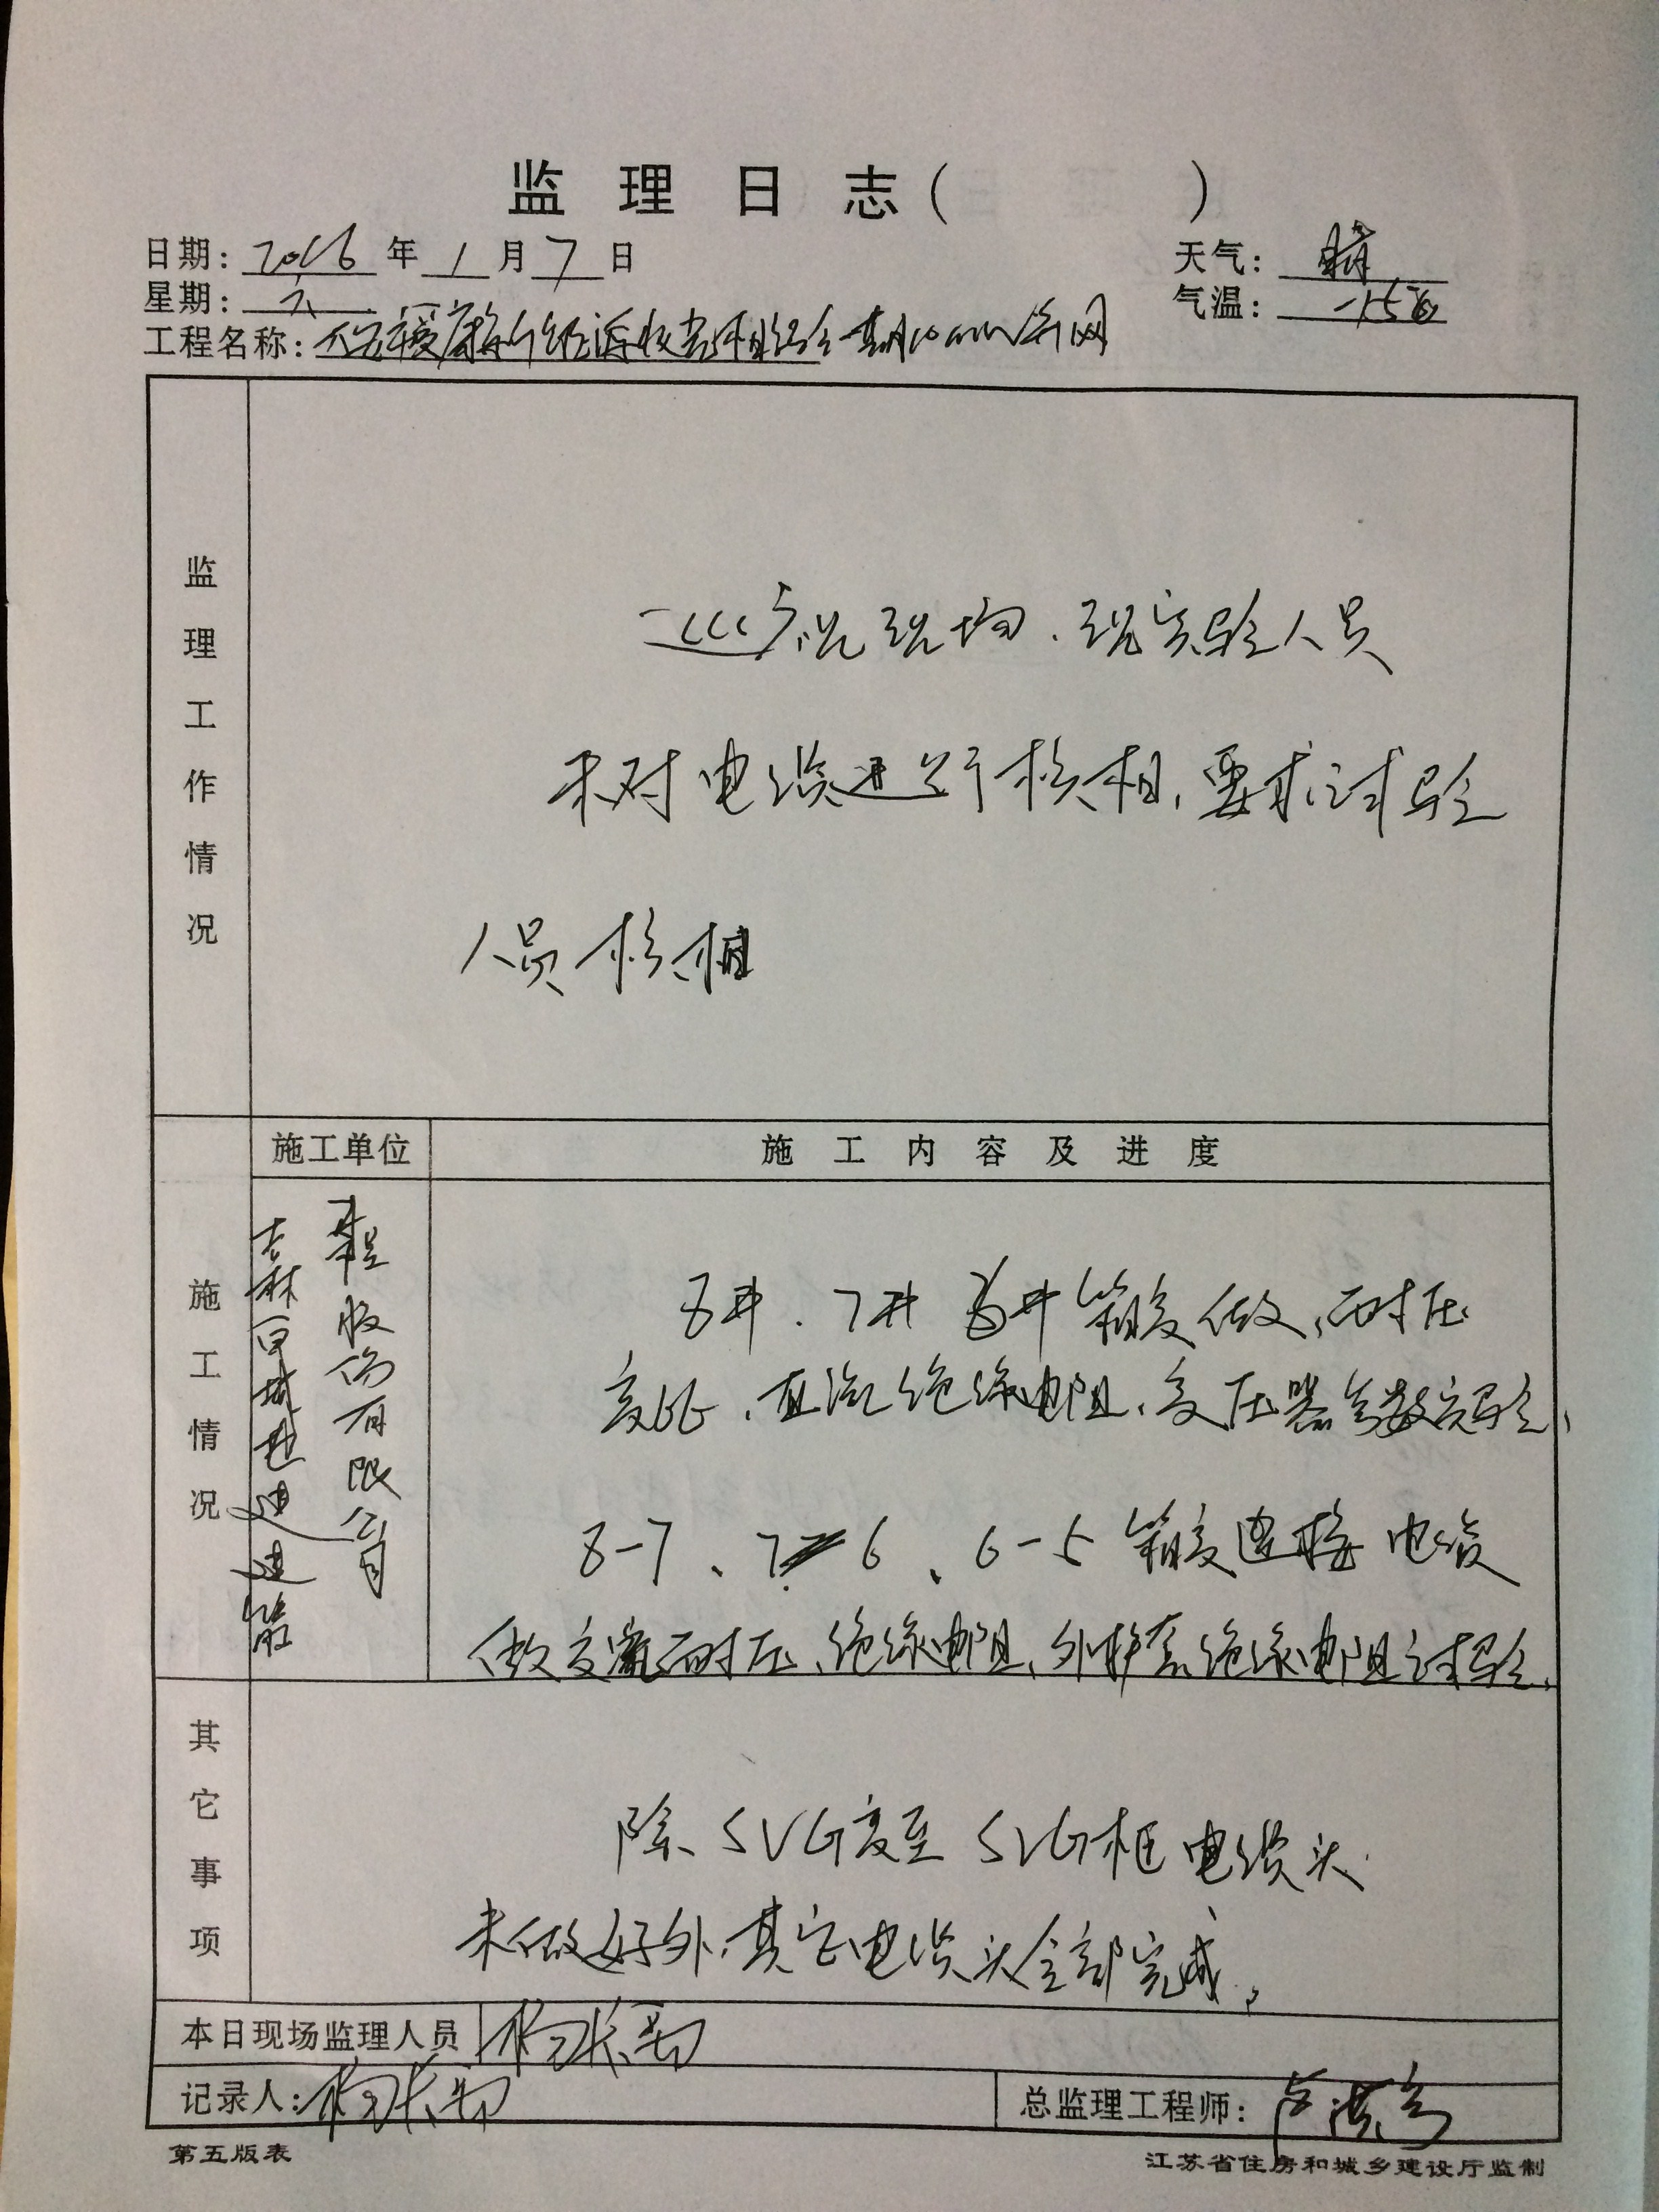 监理日志(　　　)
日期: 2016 年 1 月 7 日
天气: 晴
星期: 六
气温: -15
工程名称:
监理工作情况
巡视现场.现实验人员
未对电缆进行核相,要求试验
人员核相
施工单位
施工内容及进度
施工情况
吉林百城建筑
工程股份有限公司
8#.7# 6#箱变做耐压
变比、直流绝缘电阻、变压器参数实验、
8-7、7-6、6-5箱变连接电缆
做交流耐压、绝缘电阻、外护套绝缘电阻试验.
其它事项
除SVG变至SVG柜电缆头
未做好外,其它电缆头全部完成。
本日现场监理人员
记录人:
总监理工程师:
第五版表
江苏省住房和城乡建设厅监制